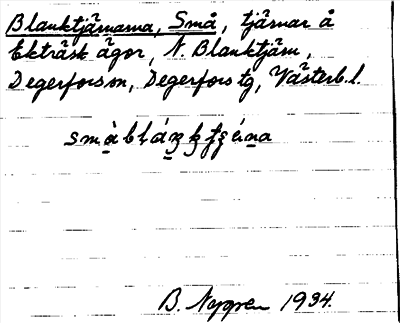 Blanktjärnarna, Små, tjärnar å
Ekträsk ägor, N. Blanktjärn,
Degerfors sn, Degerfors tg, Västerb. l.
B. Nygren 1934.